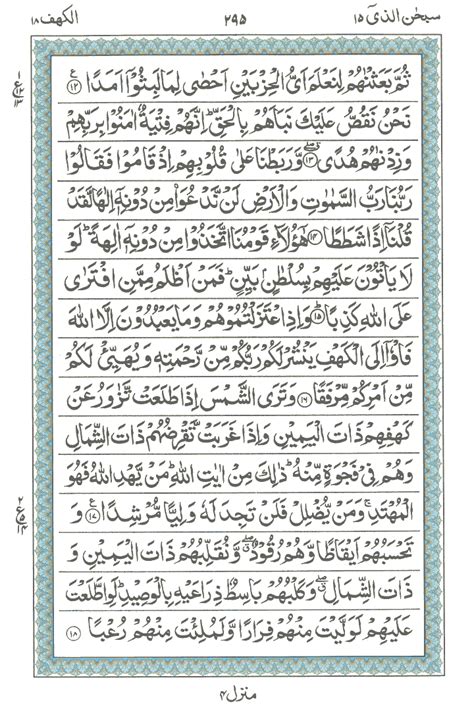 سبحٰن الذیٓ ۱۵ ۲۹۵ الکهف ۱۸
ثُمَّ بَعَثْنٰهُمْ لِنَعْلَمَ اَیُّ الْحِزْبَیْنِ اَحْصٰی لِمَا لَبِثُوْۤا اَمَدًا ﴿۱۲﴾
نَحْنُ نَقُصُّ عَلَیْكَ نَبَاَهُمْ بِالْحَقِّ ؕ اِنَّهُمْ فِتْیَةٌ اٰمَنُوْا بِرَبِّهِمْ
وَ زِدْنٰهُمْ هُدًی ﴿۱۳﴾ وَّ رَبَطْنَا عَلٰی قُلُوْبِهِمْ اِذْ قَامُوْا فَقَالُوْا
رَبُّنَا رَبُّ السَّمٰوٰتِ وَ الْاَرْضِ لَنْ نَّدْعُوَا۠ مِنْ دُوْنِهٖۤ اِلٰهًا لَّقَدْ
قُلْنَاۤ اِذًا شَطَطًا ﴿۱۴﴾ هٰۤؤُلَآءِ قَوْمُنَا اتَّخَذُوْا مِنْ دُوْنِهٖۤ اٰلِهَةً ؕ لَوْ
لَا یَاْتُوْنَ عَلَیْهِمْ بِسُلْطٰنٍۭ بَیِّنٍ ؕ فَمَنْ اَظْلَمُ مِمَّنِ افْتَرٰی
عَلَی اللّٰهِ كَذِبًا ﴿۱۵﴾ وَ اِذِ اعْتَزَلْتُمُوْهُمْ وَ مَا یَعْبُدُوْنَ اِلَّا اللّٰهَ
فَاْوٗۤا اِلَی الْكَهْفِ یَنْشُرْ لَكُمْ رَبُّكُمْ مِّنْ رَّحْمَتِهٖ وَ یُهَیِّئْ لَكُمْ
مِّنْ اَمْرِكُمْ مِّرْفَقًا ﴿۱۶﴾ وَ تَرَی الشَّمْسَ اِذَا طَلَعَتْ تَّزٰوَرُ عَنْ
كَهْفِهِمْ ذَاتَ الْیَمِیْنِ وَ اِذَا غَرَبَتْ تَّقْرِضُهُمْ ذَاتَ الشِّمَالِ
وَ هُمْ فِیْ فَجْوَةٍ مِّنْهُ ؕ ذٰلِكَ مِنْ اٰیٰتِ اللّٰهِ ؕ مَنْ یَّهْدِ اللّٰهُ فَهُوَ
الْمُهْتَدِ ۚ وَ مَنْ یُّضْلِلْ فَلَنْ تَجِدَ لَهٗ وَلِیًّا مُّرْشِدًا ﴿۱۷﴾ وَ
تَحْسَبُهُمْ اَیْقَاظًا وَّ هُمْ رُقُوْدٌ ۖ وَّ نُقَلِّبُهُمْ ذَاتَ الْیَمِیْنِ وَ
ذَاتَ الشِّمَالِ ۖ وَ كَلْبُهُمْ بَاسِطٌ ذِرَاعَیْهِ بِالْوَصِیْدِ ؕ لَوِ اطَّلَعْتَ
عَلَیْهِمْ لَوَلَّیْتَ مِنْهُمْ فِرَارًا وَّ لَمُلِئْتَ مِنْهُمْ رُعْبًا ﴿۱۸﴾
ع ۱ ۱۲ ۱۳
ع ۲ ۵ ۱۴
منزل ۴